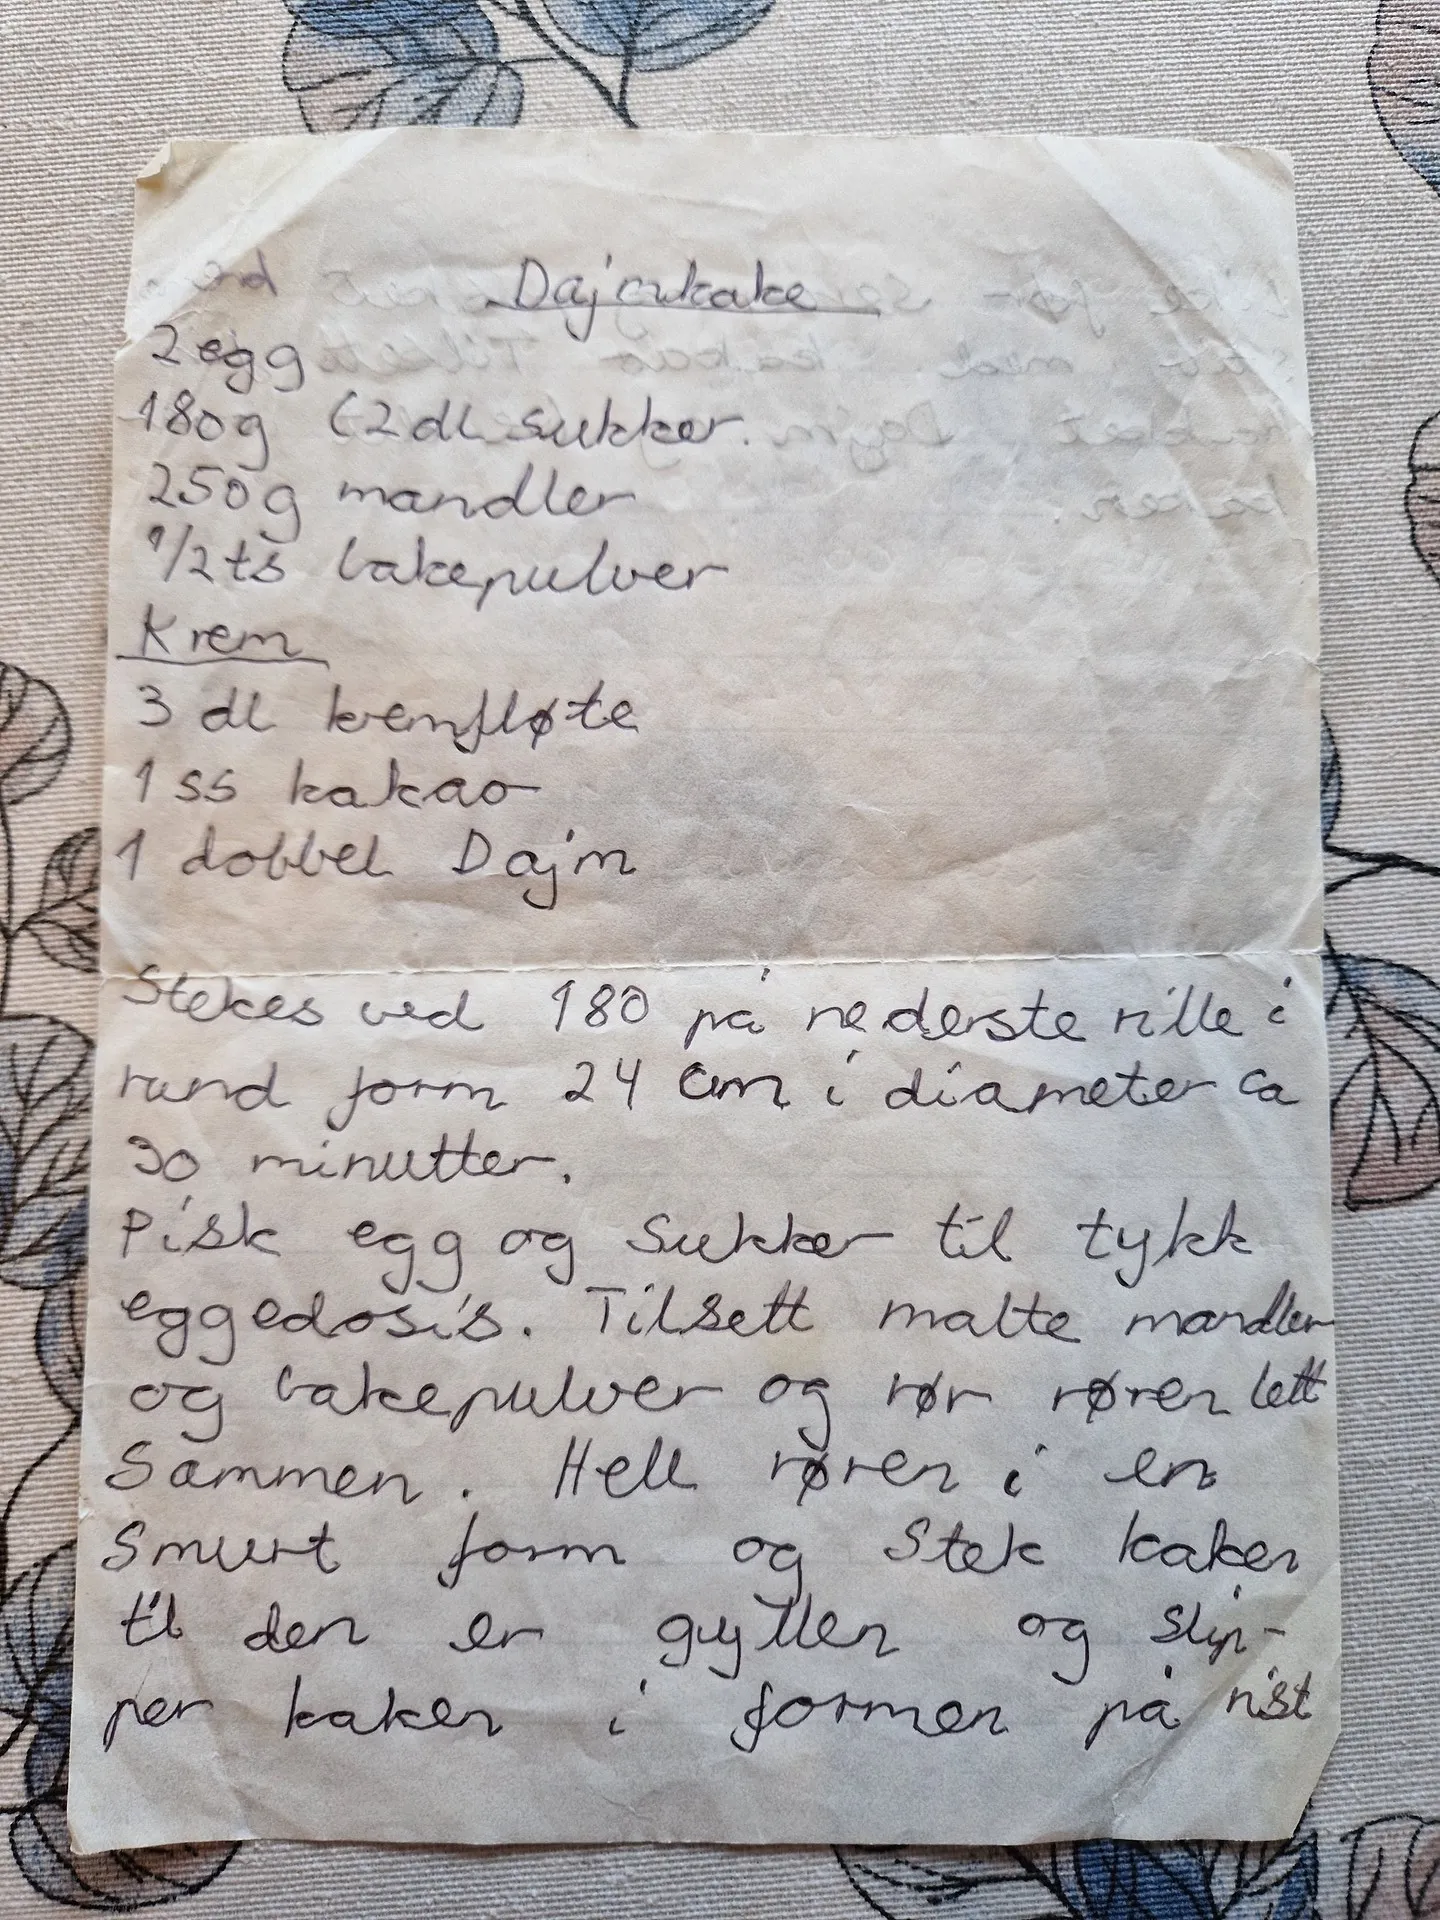 Dajmkake
2 egg
180g (2 dl sukker.
250g mandler
1/2 ts bakepulver
Krem
3 dl kremfløte
1 ss kakao
1 dobbel Dajm
Stekes ved 180 på nederste rille i
rund form 24 cm i diameter ca
30 minutter.
Pisk egg og sukker til tykk
eggedosis. Tilsett malte mandler
og bakepulver og rør røren lett
sammen. Hell røren i en
smurt form og stek kaken
til den er gyllen og slip-
per kaken i formen på rist